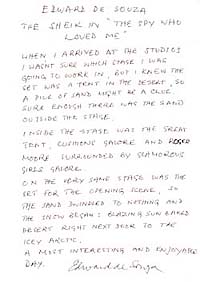 EDWARD DE SOUZA
THE SHEIK IN "THE SPY WHO
LOVED ME"
WHEN I ARRIVED AT THE STUDIOS
I WASNT SURE WHICH STAGE I WAS
GOING TO WORK IN, BUT I KNEW THE
SET WAS A TENT IN THE DESERT, SO
A PILE OF SAND MIGHT BE A CLUE.
SURE ENOUGH THERE WAS THE SAND
OUTSIDE THE STAGE.
INSIDE THE STAGE WAS THE GREAT
TENT, CUSHIONS GALORE AND ROGER
MOORE SURROUNDED BY GLAMOROUS
GIRLS GALORE.
ON THE VERY SAME STAGE WAS THE
SET FOR THE OPENING SCENE, SO
THE SAND DWINDLED TO NOTHING AND
THE SNOW BEGAN: BLAZING SUN BAKED
DESERT RIGHT NEXT DOOR TO THE
ICEY ARCTIC.
A MOST INTERESTING AND ENJOYABLE
DAY.
Edward de Souza